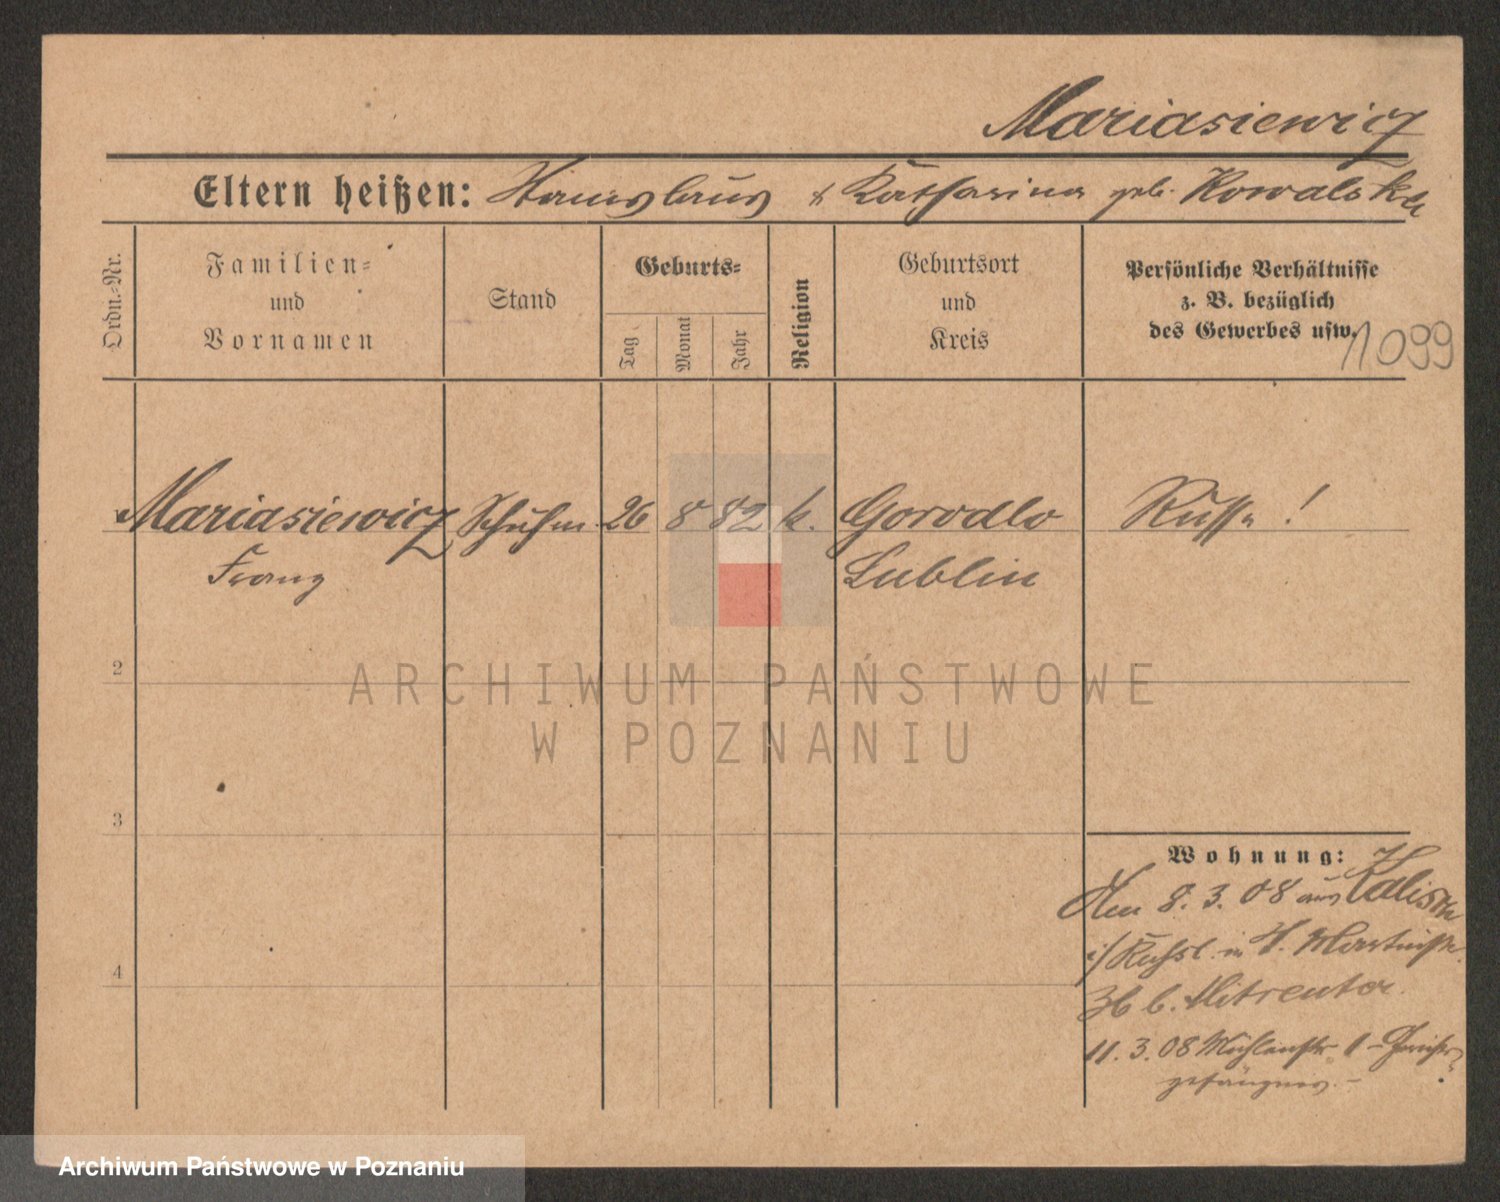 Mariasiewicz
Eltern heißen: Stanislaus & Katharina geb. Kowalska
Ordn.-Nr.
Familien-
und
Vornamen
Stand
Geburts-
Tag
Monat
Jahr
Religion
Geburtsort
und
Kreis
Persönliche Verhältnisse
z. B. bezüglich
des Gewerbes usw.
11099
Mariasiewicz Schuhm. 26 8 82 k. Gorodlo Russe!
Franz Lublin
2
ARCHIWUM PAŃSTWOWE
W POZNANIU
3
Wohnung:
8. 3. 08 aus Kalisch
i/Russl. in
36 b.
11. 3. 08 Mühlenstr. 1 - Gerichts-
gefängnis. -
4
Archiwum Państwowe w Poznaniu